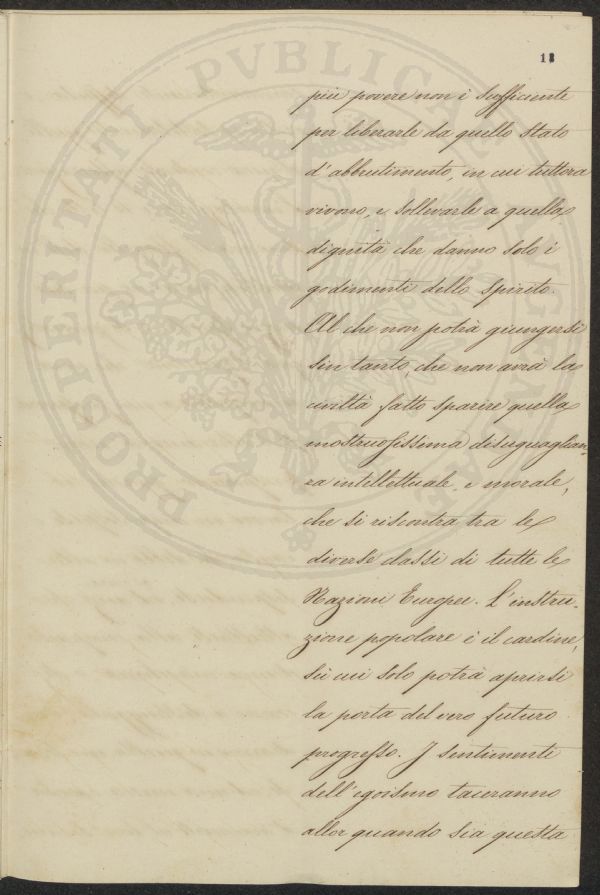 13
più povere non è sufficiente
per liberarle da quello Stato
d'abbrutimento, in cui tuttora
vivono, e sollevarle a quella
dignità che danno solo i
godimenti dello Spirito.
Al che non potrà giungersi
sin tanto, che non avrà la
civiltà fatto sparire quella
mostruosissima disuguaglian-
za intellettuale e morale,
che si riscontra tra le
diverse classi di tutte le
Nazioni Europee. L'instru-
zione popolare è il cardine,
su cui solo potrà aprirsi
la porta del vero futuro
progresso. I sentimenti
dell'egoismo taceranno
allor quando sia questa
PROSPERITATI PVBLICAE AVGENDAE